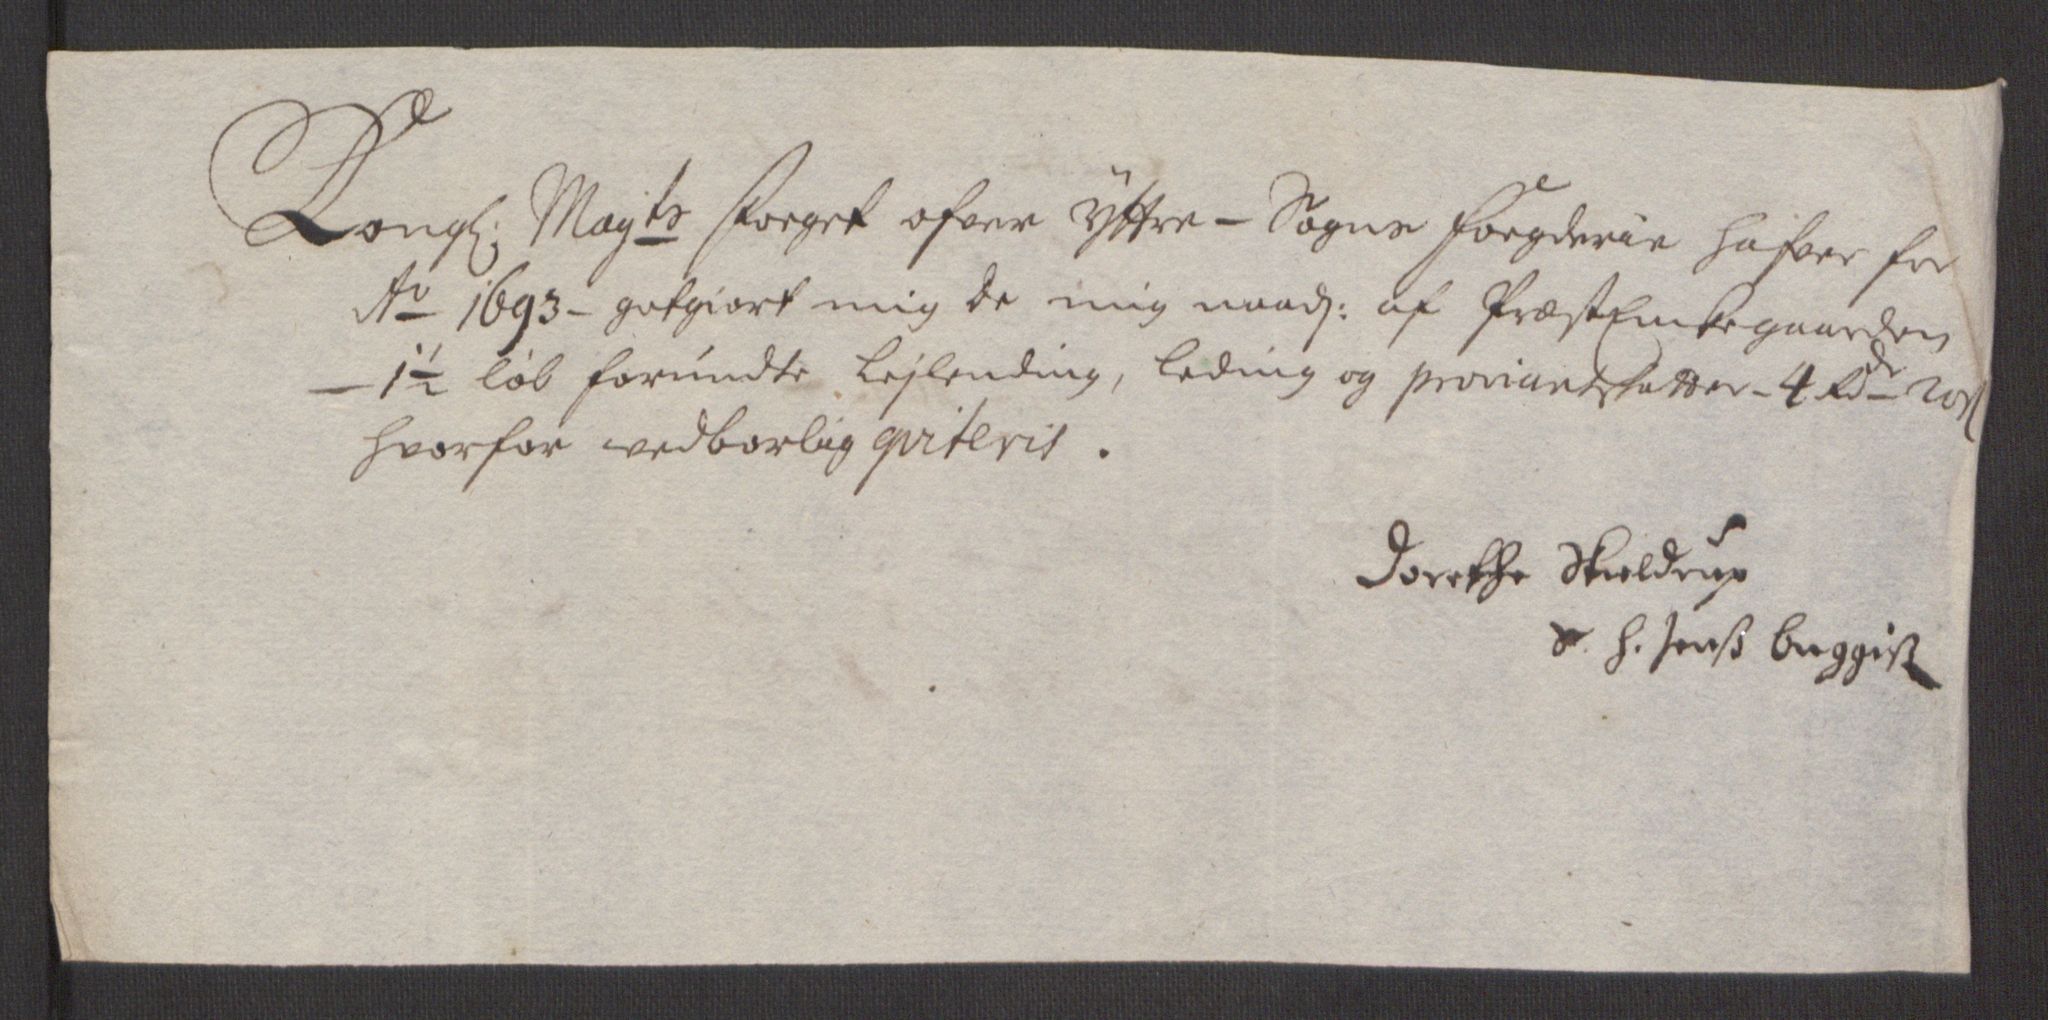 Kongl: Mayts Foeget ofver Yttre - Sogns Foegderie hafver for
Ao 1693 - gotgiort mig de mig naad: af PræstEnckegaarden
- 1½ løb forundte Leylending, leding og proviantskatter - 4 Rdr - 20 s
hvorfor vedborlig qviteris.
Dorethe Skieldrup
S. H. Jenß Buggiß